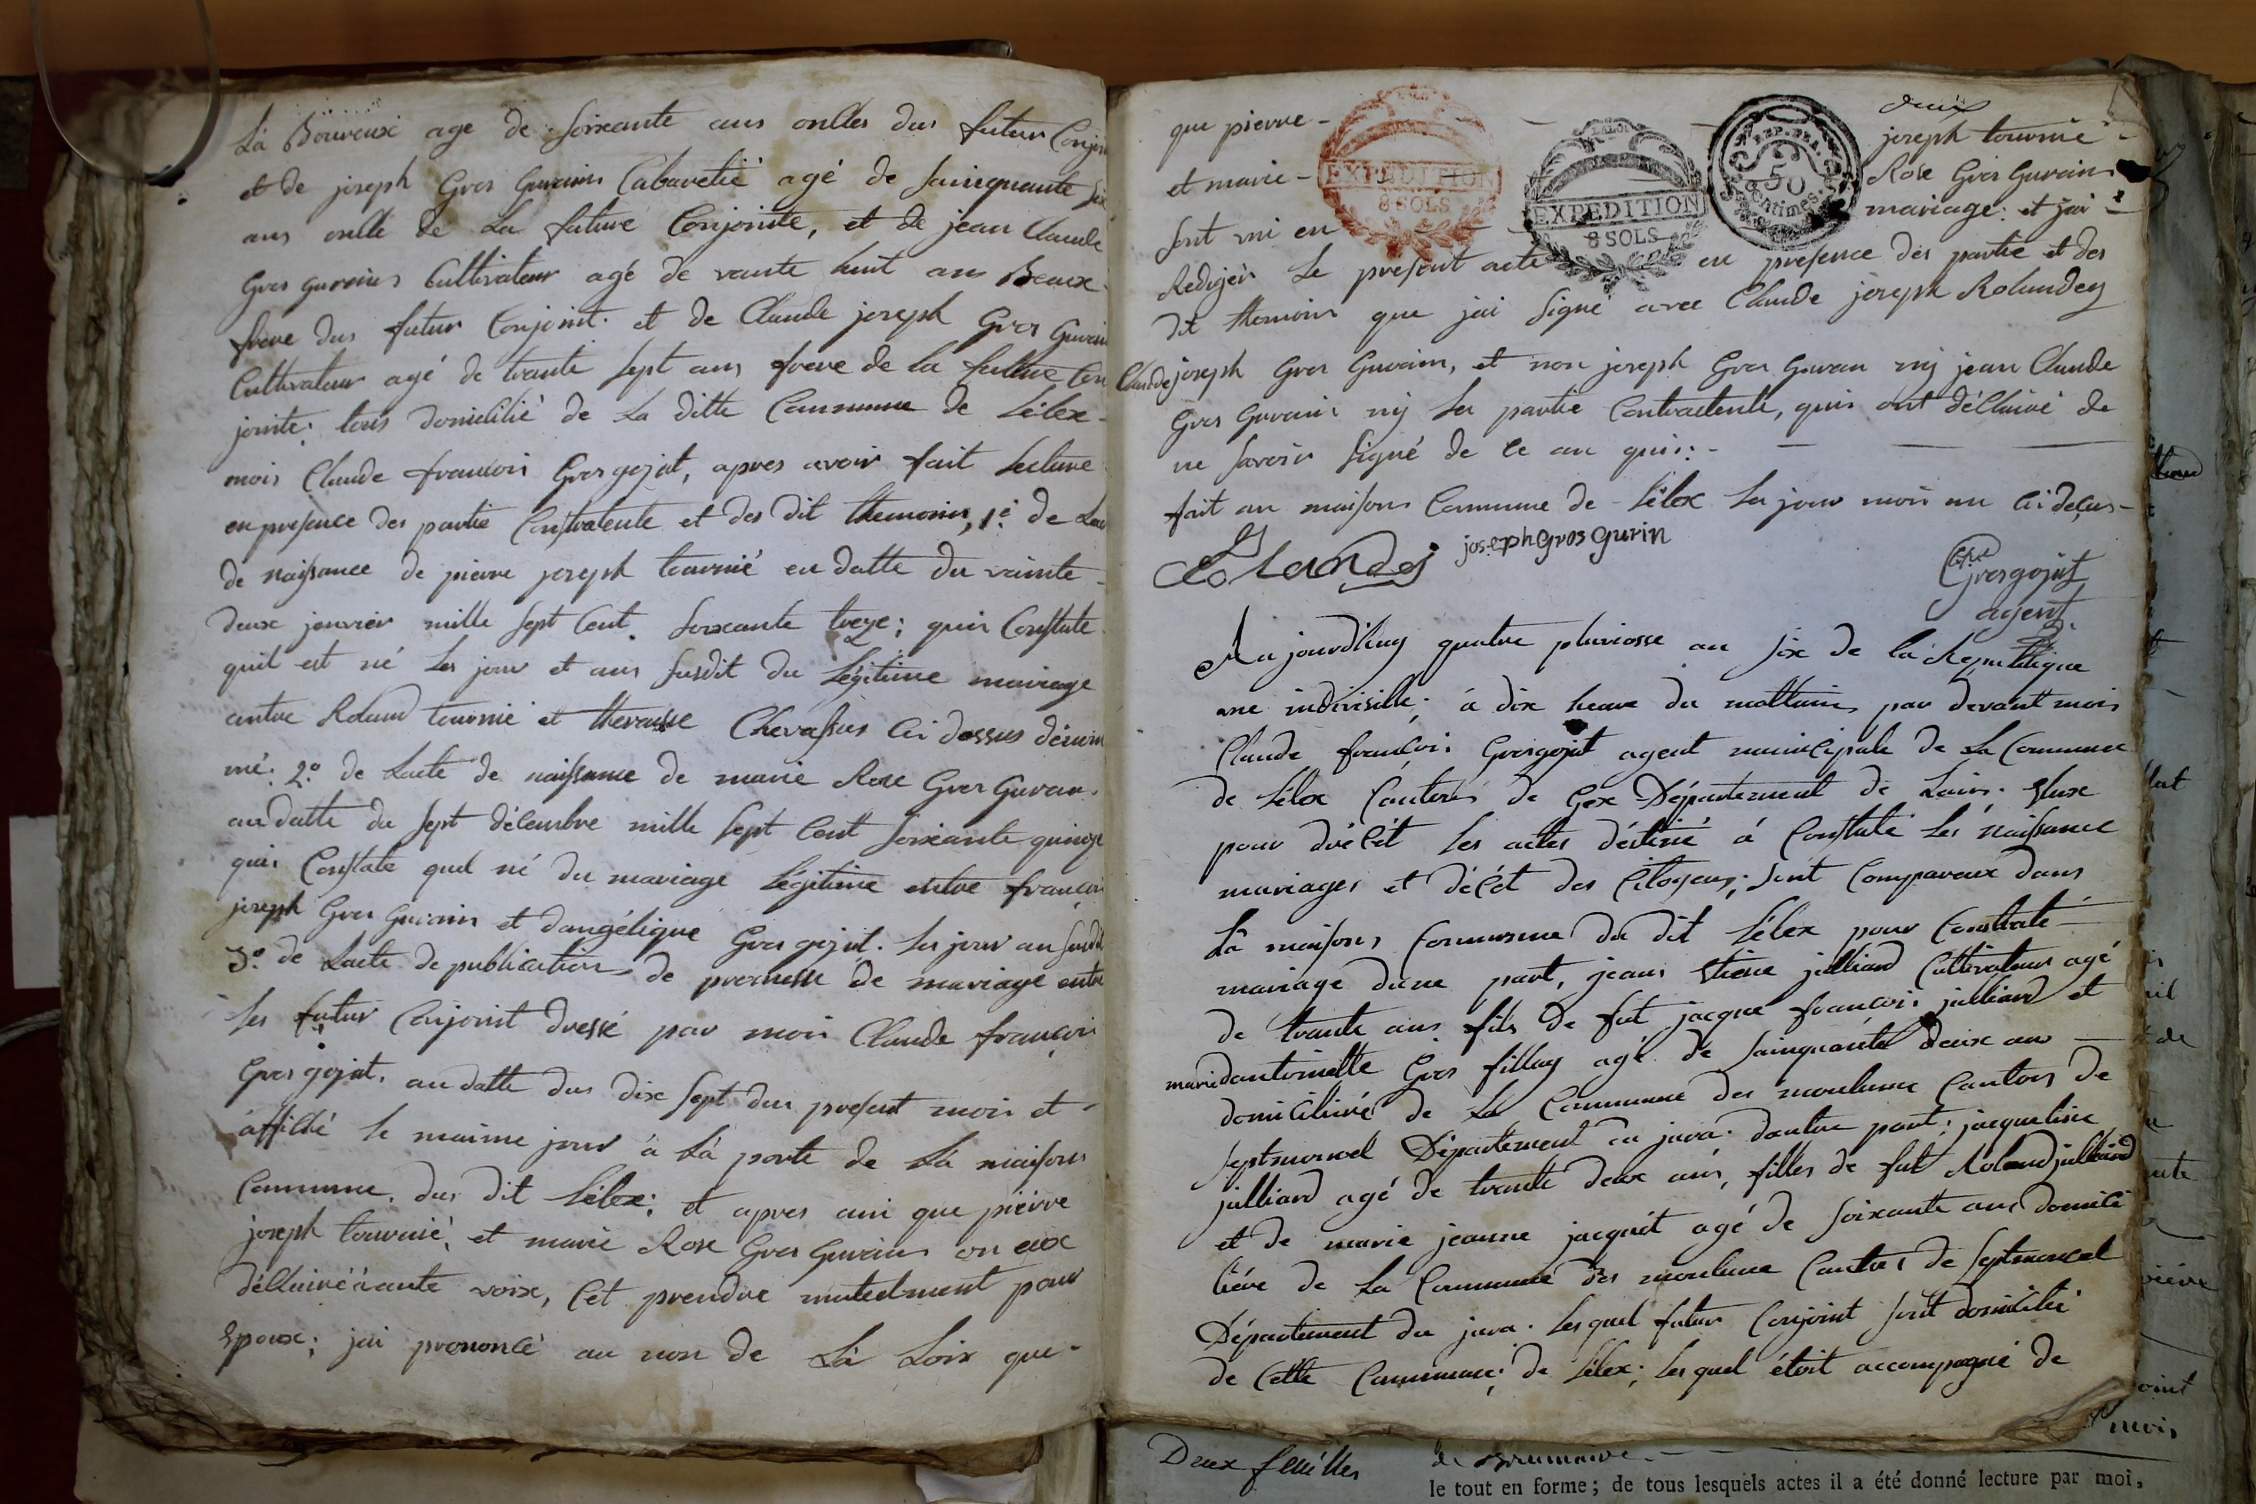 La Bouveux age de soixante ans onlles dus futur Conjoi
et de joseph Gros Gurin Cabaretié agé de sainquante six
ans onlle de La future Conjointe, et de jean Claude
Gros gurin Cultivateur agé de vainte huit ans Beaux
frere dus futur Conjoint. et de Claude joseph Gros Gurin
Cultivateur agé de trante sept ans frere de la future Con
jointe; tous domicilié de La ditte Commune de Lélex
mois Claude francois Grosgojat, apres avoir fait Lecture
en presence des partie Contratente et des dit themoins, 1.e de Lac
de naissance de pierre joseph tournié en datte du vainte
deux janvier mille sept Cent soixante treze; quis Constate
quil est né Les jour et ans susdit du Légitime mariage
antre Roland tournié et therausse Chevassus Ci dessus dénom
mé. 2.o de Lacte de naissance de marie Rose Gros Guran.
au datte du sept décembre mille sept Cent soixante quinze
quis Constate quel né du mariage Légitime entre françois
joseph Gros Gurin et dangélique Gros gojat. Les jour an susdit
3.o de Lacte de publication de promesse de mariage entre
Les futur Conjoint dressé par mois Claude françois
Gros gojat. au datte dus dix sept dus present mois et
affiché le maime jour à La porte de La maison
Commune. dus dit Lélex; et apres ain que pierre
joseph tournié, et marie Rose Gros Gurin on eux
déClairé àaute voix, Cet prendre mutelment pour
Epoux; jai prononcé au non de La Loix que
que pierre
deüx
joseph tournié
et marie
Rose Gros Gurain
sont uni en
mariage: et jai
EXPEDITION
8 SOLS
LA LOI
EXPEDITION
8 SOLS
REP. FRA.
50
Centimes
Rediger Le present acte en presence des partie et des
dit themoins que jai signé avec Claude joseph Rolandez
Claude joseph Gros Gurain, et non joseph Gros Guran nij jean Claude
Gros Gurain nij Les partie Contractente, quis ont déClairé de
ne savoir signé de Ce an quis;
fait au maison Commune de Lélex Les jour mois an Ci deçus
Rolandez joseph Gros Gurin
Grosgojat
agent
Aujourdhuy quatre pluviosse an six de la République
une indivisible; à dix heure du mattain par devant mois
Claude francois Grosgojat agent municipale de La Commune
de Lélex Canton de Gex Département de Lain. Eluse
pour drécét Les actes déstiné à Constaté Les naissance
mariages et décét des Citoyens; sont Comparaux dans
La maison Commune du dit Lélex pour Constraté
mariage dune part, jean Etiene julliard Cultivateur agé
de trante ans fils de fut jacque francois julliard et
mariedantoinette Gros fillay agé de sainquante deux ans
domiciliiré de La Commune des moulune Canton de
Septmoncel Département du jura. dautre part; jacqueline
julliard agé de trante deux ans, filles de fut Roland julliard
et de marie jeanne jacquét agé de soixante ans domici
liére de La Commune des moulune Canton de Septmoncel
Département du jura. Les quel futur Conjoint sont domicilié
de Cette Commune; de Lélex; Les quel étoit accompagné de
mois
Deux feuilles
de Brumaire.
le tout en forme ; de tous lesquels actes il a été donné lecture par moi,